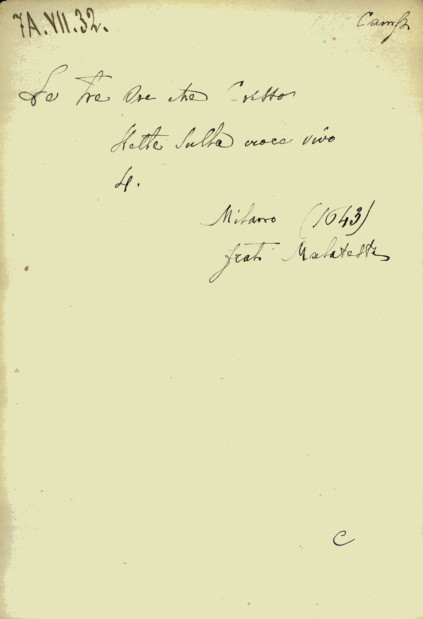 7A.VII.32.
Le Tre Ore che Cristo
stette sulla croce vivo
4.
Milano (1643)
frati Malatesta
C